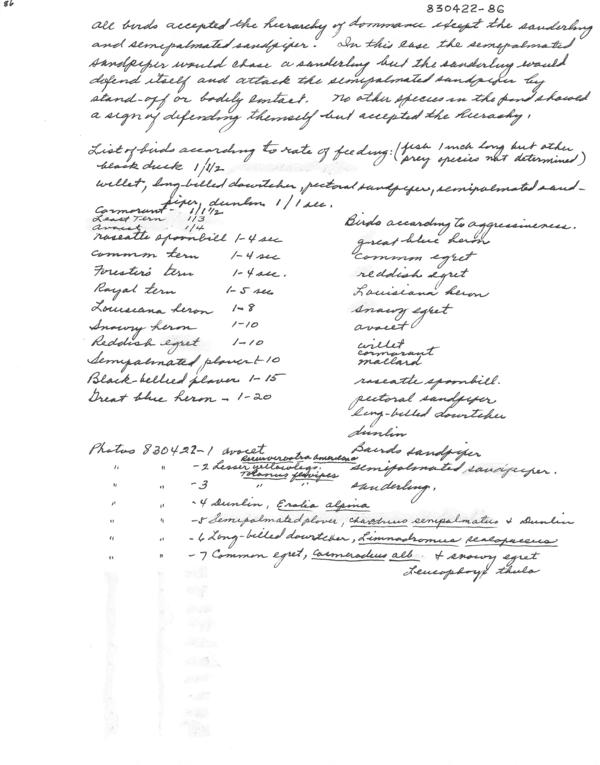 86
830422-86
all birds accepted the hierarchy of dominance except the sanderling
and semipalmated sandpiper. In this case the semipalmated
sandpiper would chase a sanderling but the sanderling would
defend itself and attack the semipalmated sandpiper by
stand-off or bodily contact. No other species in the pond showed
a sign of defending themself but accepted the hierachy.
List of birds according to rate of feeding: (fish 1 inch long but other
prey species not determined)
black duck 1/1/2
willet, long-billed dowitcher, pectoral sandpiper, semipalmated sand-
piper, dunlin 1/1 sec.
Cormorant - 1/1 1/2
Least Tern 1/3
avocet 1/4
roseatte spoonbill 1-4 sec
common tern 1-4 sec
Forester's tern 1-4 sec.
Royal tern 1-5 sec
Louisiana heron 1-8
Snowy heron 1-10
Reddish egret 1-10
Semipalmated plover 1-10
Black-bellied plover 1-15
Great blue heron - 1-20
Birds according to aggressiveness.
great blue heron
common egret
reddish egret
Louisiana heron
snowy egret
avocet
willet
cormorant
mallard
roseatte spoonbill.
pectoral sandpiper
long-billed dowitcher
dunlin
Bairds sandpiper
semipalmated sandpiper.
sanderling.
Photos 830422-1 avocet
Recurvirostra americana
" " -2 Lesser yellowlegs
Totanus flavipes
" " -3 " "
" " -4 Dunlin, Erolia alpina
" " -5 Semipalmated plover, Charadrius semipalmatus + Dunlin
" " -6 Long-billed dowitcher, Limnodromus scalopaceus
" " -7 Common egret, Casmerodius alb. + snowy egret
Leucophoyx thula